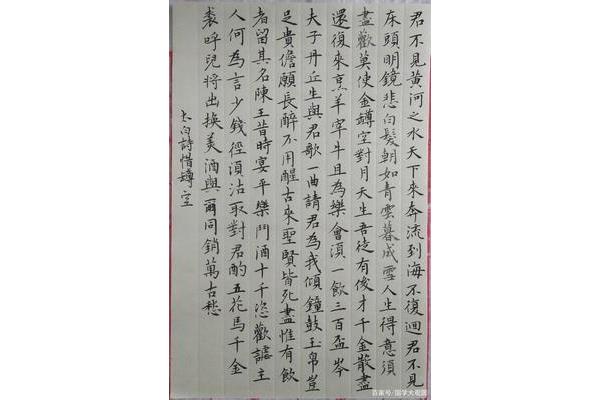 君不見黃河之水天下來奔流到海不復迴君不見
床頭明鏡悲白髮朝如青雲暮成雪人生得意須
盡歡莫使金罇空對月天生吾徒有俊才千金散盡
還復來烹羊宰牛且為樂會須一飲三百盃岑
夫子丹丘生與君歌一曲請君為我傾鐘鼓玉帛豈
足貴儋願長醉不用醒古來聖賢皆死盡惟有飲
者留其名陳王昔時宴平樂鬥酒十千恣歡謔主
人何為言少錢徑須沽取對君酌五花馬千金
裘呼兒將出換美酒與爾同銷萬古愁
太白詩惜罇空
百家号/国学大观园